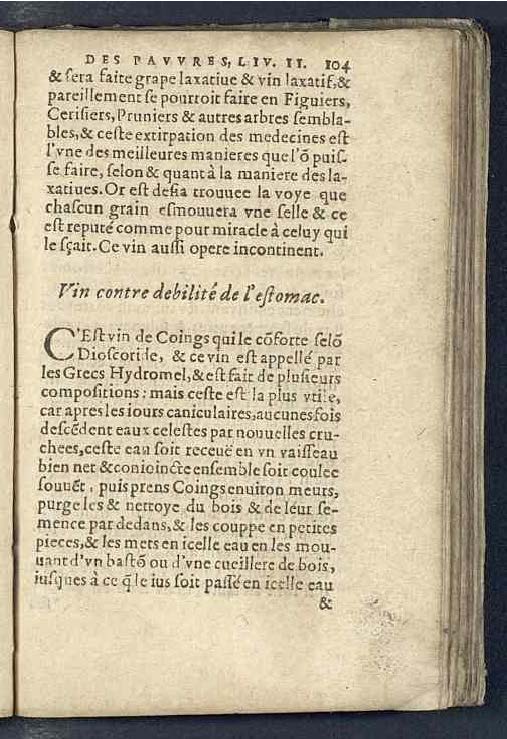 DES PAVVRES, LIV. II. 104
& ſera faite grape laxatiue & vin laxatif, &
pareillement ſe pourroit faire en Figuiers,
Ceriſiers, Pruniers & autres arbres ſembla-
bles, & ceſte extirpation des medecines eſt
l'vne des meilleures manieres que l'õ puiſ-
ſe faire, ſelon & quant à la maniere des la-
xatiues. Or eſt deſia trouuee la voye que
chaſcun grain eſmouuera vne ſelle & ce
eſt reputé comme pour miracle à celuy qui
le ſçait. Ce vin auſſi opere incontinent.
Vin contre debilité de l'eſtomac.
C'Eſt vin de Coings qui le cõforte ſelõ
Dioſcoride, & ce vin eſt appellé par
les Grecs Hydromel, & eſt fait de pluſieurs
compoſitions: mais ceſte eſt la plus vtile,
car apres les iours caniculaires, aucunes fois
deſcẽdent eaux celeſtes par nouuelles cru-
chees, ceſte eau ſoit receuë en vn vaiſſeau
bien net & conioincte enſemble ſoit coulee
ſouuẽt, puis prens Coings enuiron meurs,
purge les & nettoye du bois & de leur ſe-
mence par dedans, & les couppe en petites
pieces, & les mets en icelle eau en les mou-
uant d'vn baſtõ ou d'vne cueillere de bois,
iuſques à ce q̃ le ius ſoit paſſé en icelle eau
&